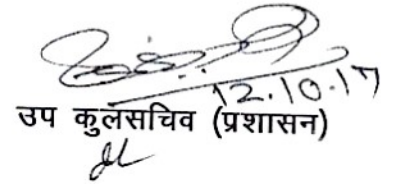 12.10.17
उप कुलसचिव (प्रशासन)